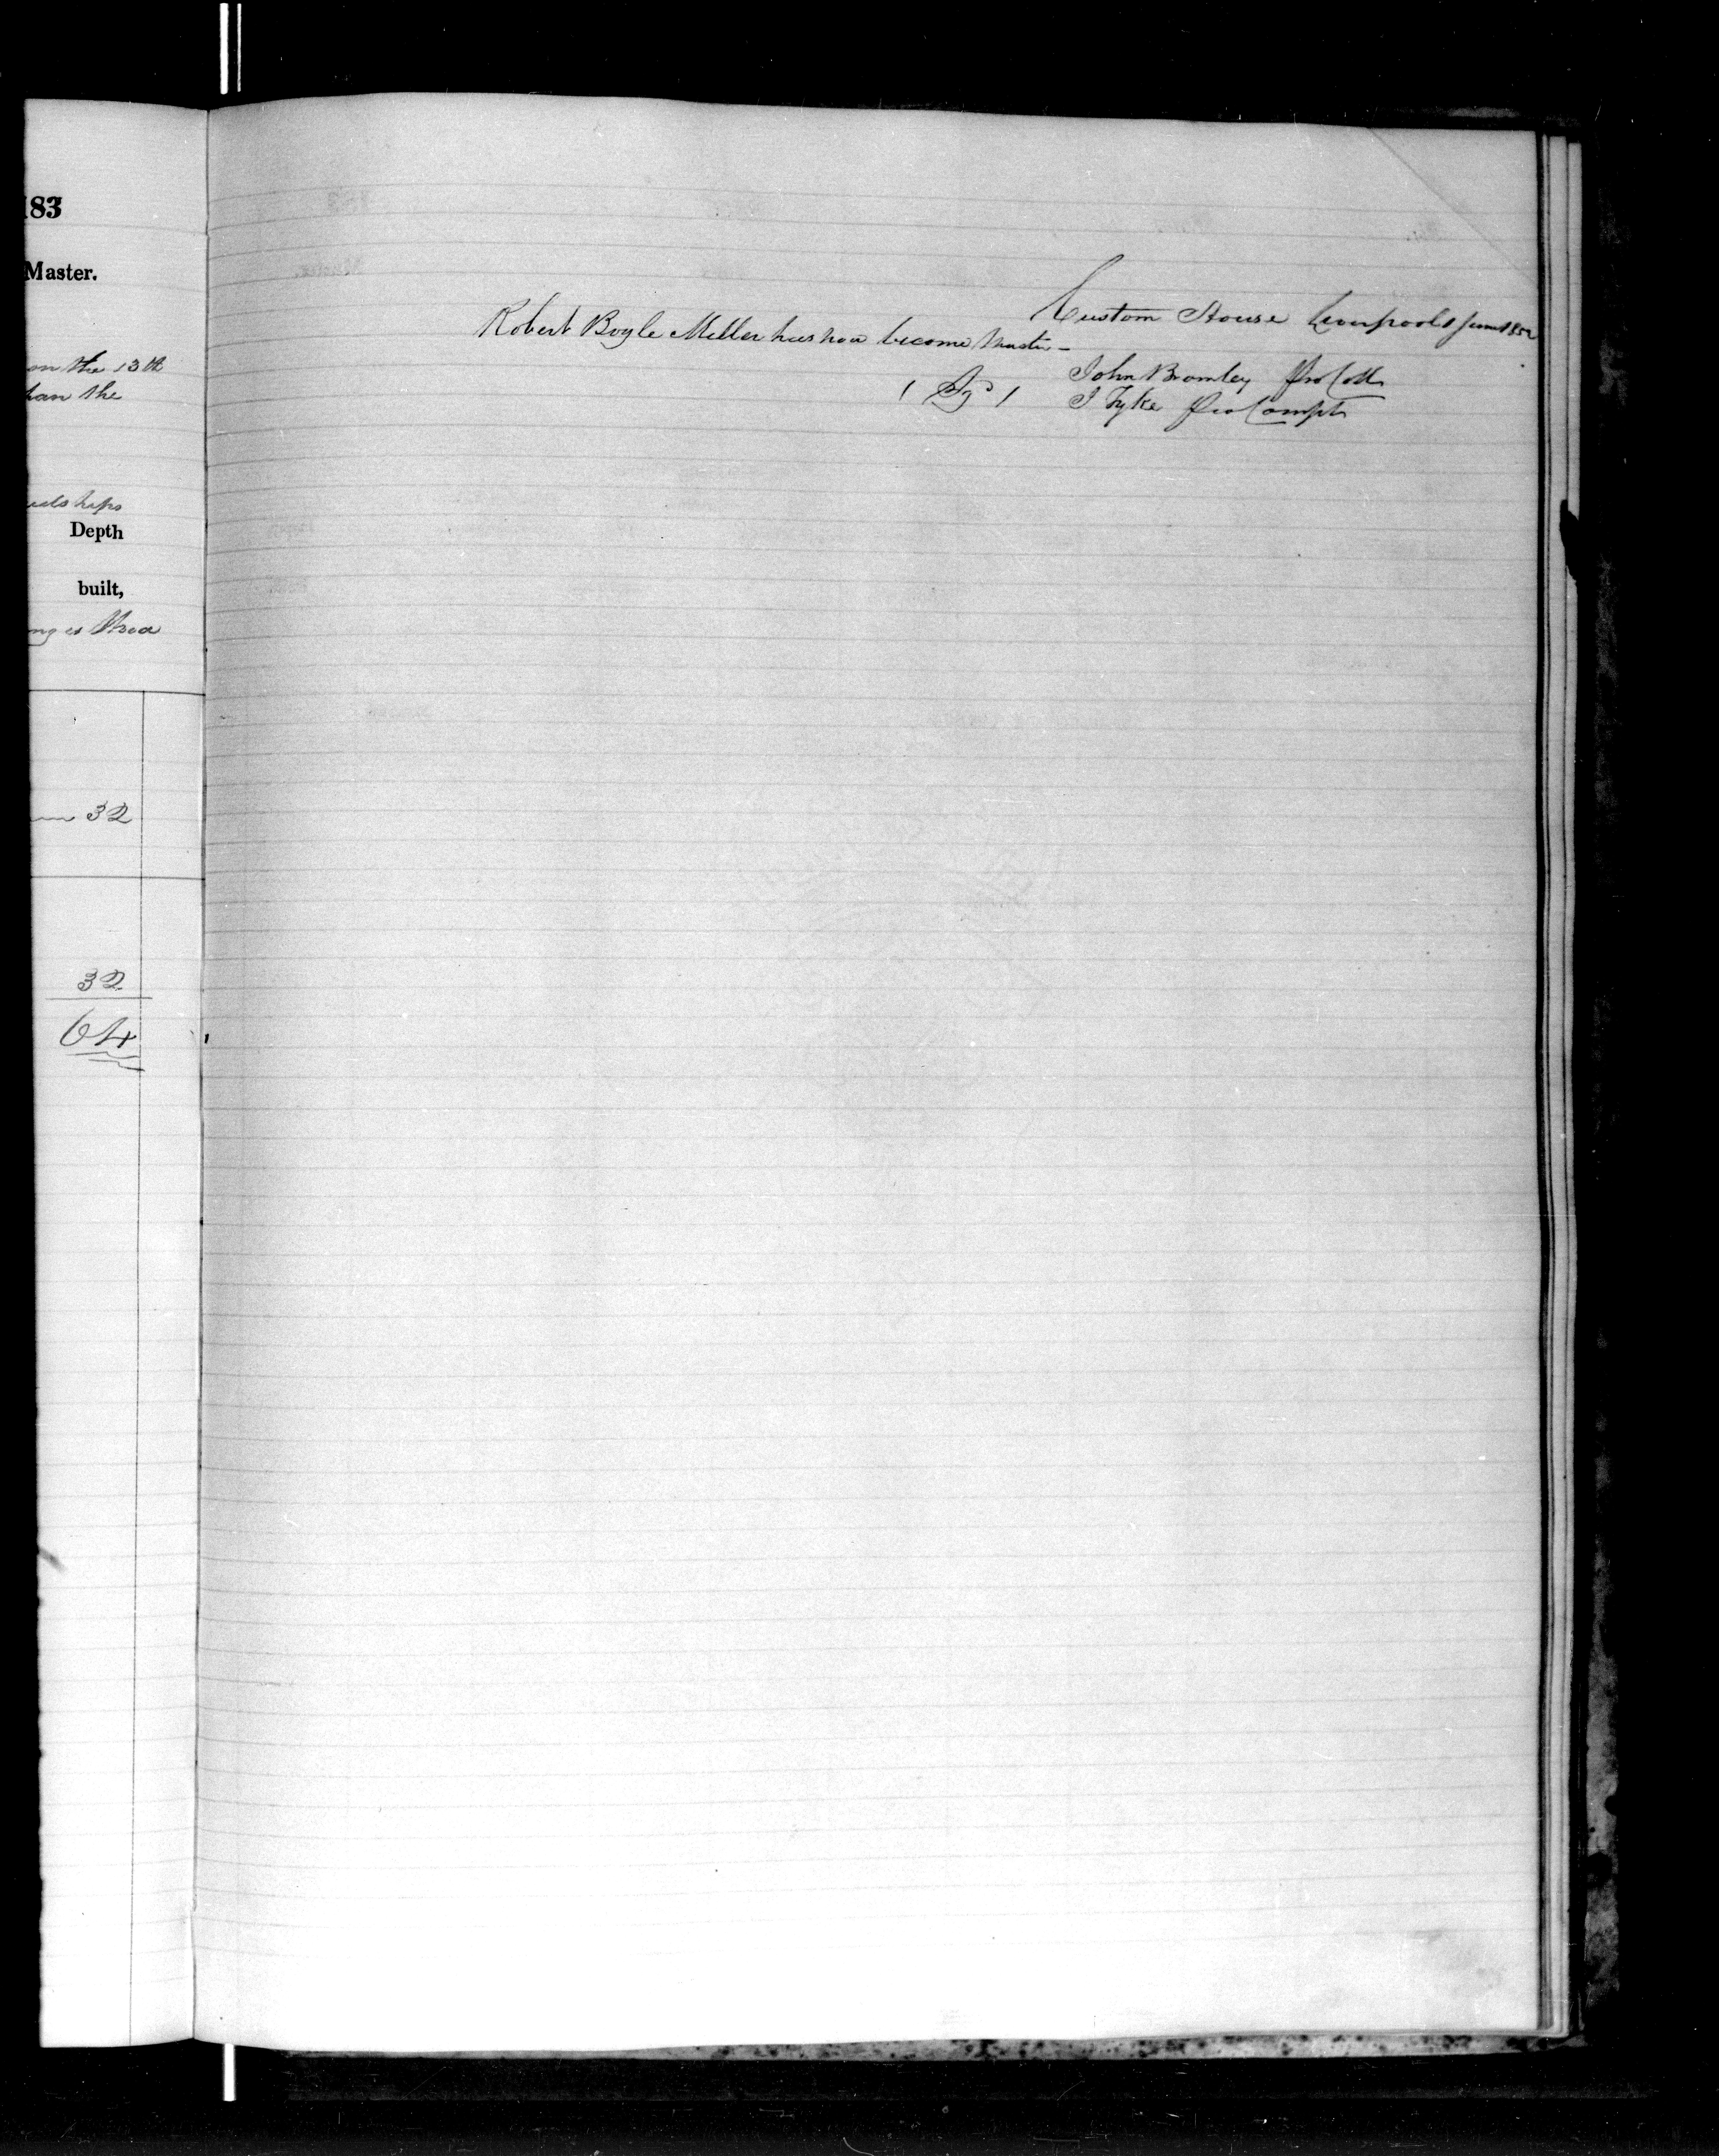 183
Master.
on the 13th
than the
Depth
built,
32
32
64
Custom House Liverpool 1 June 1852
Robert Boyle Miller has now become Master -
( Sgd ) John Bromley Pro Coll
J Tyke Pro Compt